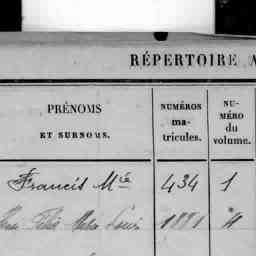 RÉPERTOIRE A
PRÉNOMS
ET SURNOMS.
NUMÉROS
ma-
tricules.
NU-
MÉRO
du
volume.
Francis Mie 434 1
Louis